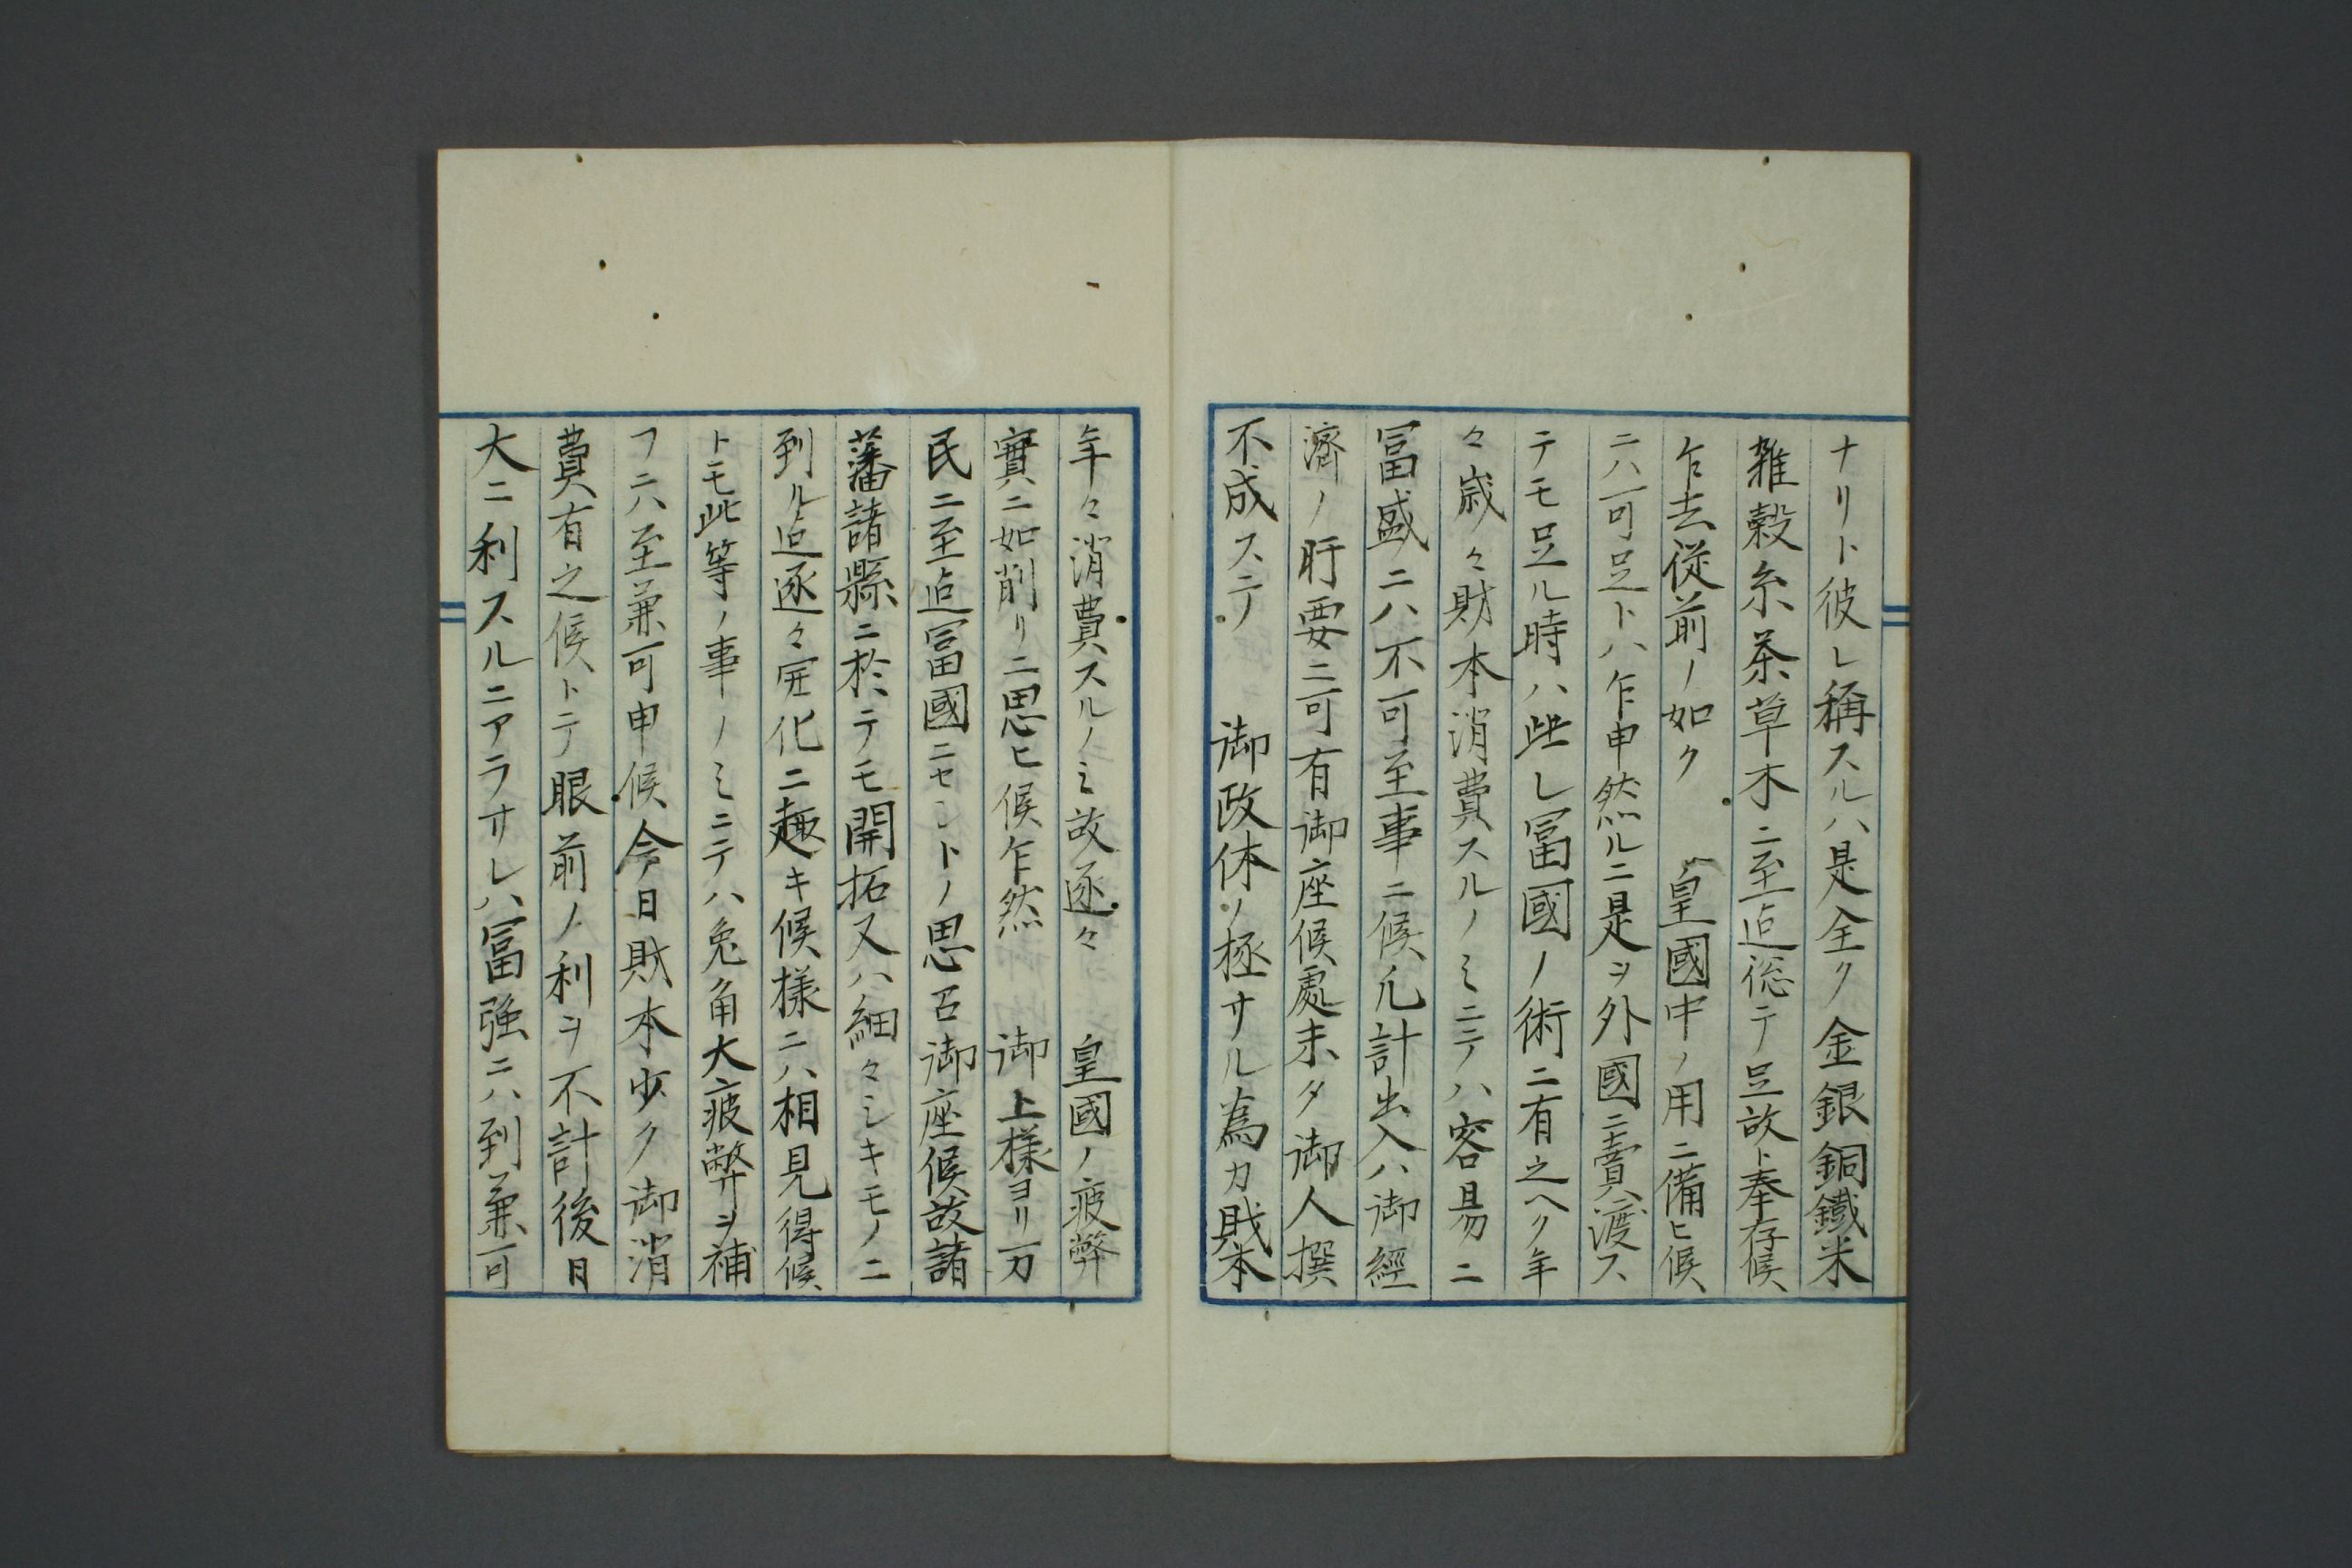 ナリト彼レ稱スルハ是全ク金銀銅鐵米
雑穀糸茶草木ニ至迠総テ足故ト奉存候
乍去従前ノ如ク　皇國中ノ用ニ備ヒ候
ニハ可足トハ乍申然ルニ是ヲ外國ニ賣渡ス
テモ足ル時ハ些レ冨國ノ術ニ有之ヘク年
々歳々財本消費スルノミニテハ容易ニ
冨盛ニハ不可至事ニ候凡計出入ハ御經
濟ノ肝要ニ可有御座候處未タ御人撰
不成ステ　御政体ノ極サル為カ財本
年々消費スルノミ故逐々　皇國ノ疲弊
實ニ如削リニ思ヒ候乍然　御上様ヨリ一万
民ニ至迠冨國ニセントノ思召御座候故諸
藩諸縣ニ於テモ開拓又ハ細々シキモノニ
到ル迠逐々開化ニ趣キ候様ニハ相見得候
トモ此等ノ事ノミニテハ兎角大疲弊ヲ補
フニハ至兼可申候今日財本少ク御消
費有之候トテ眼前ノ利ヲ不計後日
大ニ利スルニアラサレハ冨強ニハ到兼可